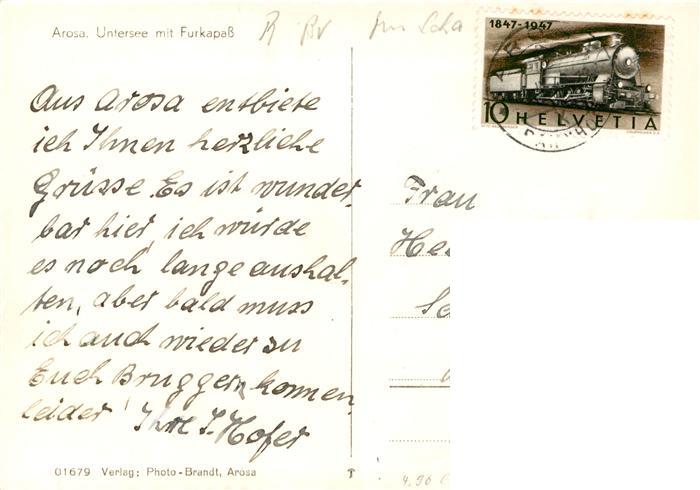 Arosa. Untersee mit Furkapaß
1847-1947
10 HELVETIA
Aus Arosa entbiete
ich Ihnen herzliche
Grüsse. Es ist wunder-
bar hier, ich würde
es noch lange aushal-
ten, aber bald muss
ich auch wieder zu
Euch Bruggern kommen,
leider! Ihre J. Hofer
Frau
01679 Verlag: Photo-Brandt, Arosa